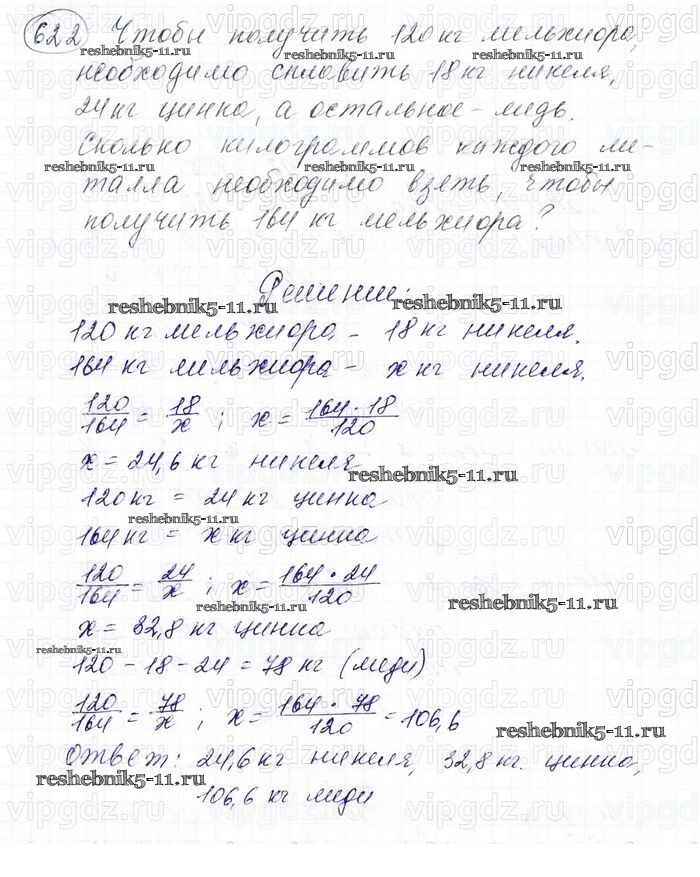 622 Чтобы получить 120 кг мельхиора,
reshebnik5-11.ru reshebnik5-11.ru
необходимо сплавить 18 кг никеля,
24 кг цинка, а остальное - медь.
Сколько килограммов каждого ме-
reshebnik5-11.ru reshebnik5-11.ru reshebnik5-11.ru
талла необходимо взять, чтобы
получить 164 кг мельхиора?
Решение:
reshebnik5-11.ru reshebnik5-11.ru
120 кг мельхиора - 18 кг никеля.
164 кг мельхиора - x кг никеля.
120/164 = 18/x ; x = 164·18/120
x = 24,6 кг никеля
reshebnik5-11.ru
120 кг = 24 кг цинка
reshebnik5-11.ru
164 кг = x кг цинка
120/164 = 24/x ; x = 164·24/120
reshebnik5-11.ru reshebnik5-11.ru
x = 32,8 кг цинка
reshebnik5-11.ru
120 - 18 - 24 = 78 кг (меди)
120/164 = 78/x ; x = 164·78/120 = 106,6
reshebnik5-11.ru
Ответ: 24,6 кг никеля, 32,8 кг. цинка,
reshebnik5-11.ru
106,6 кг меди